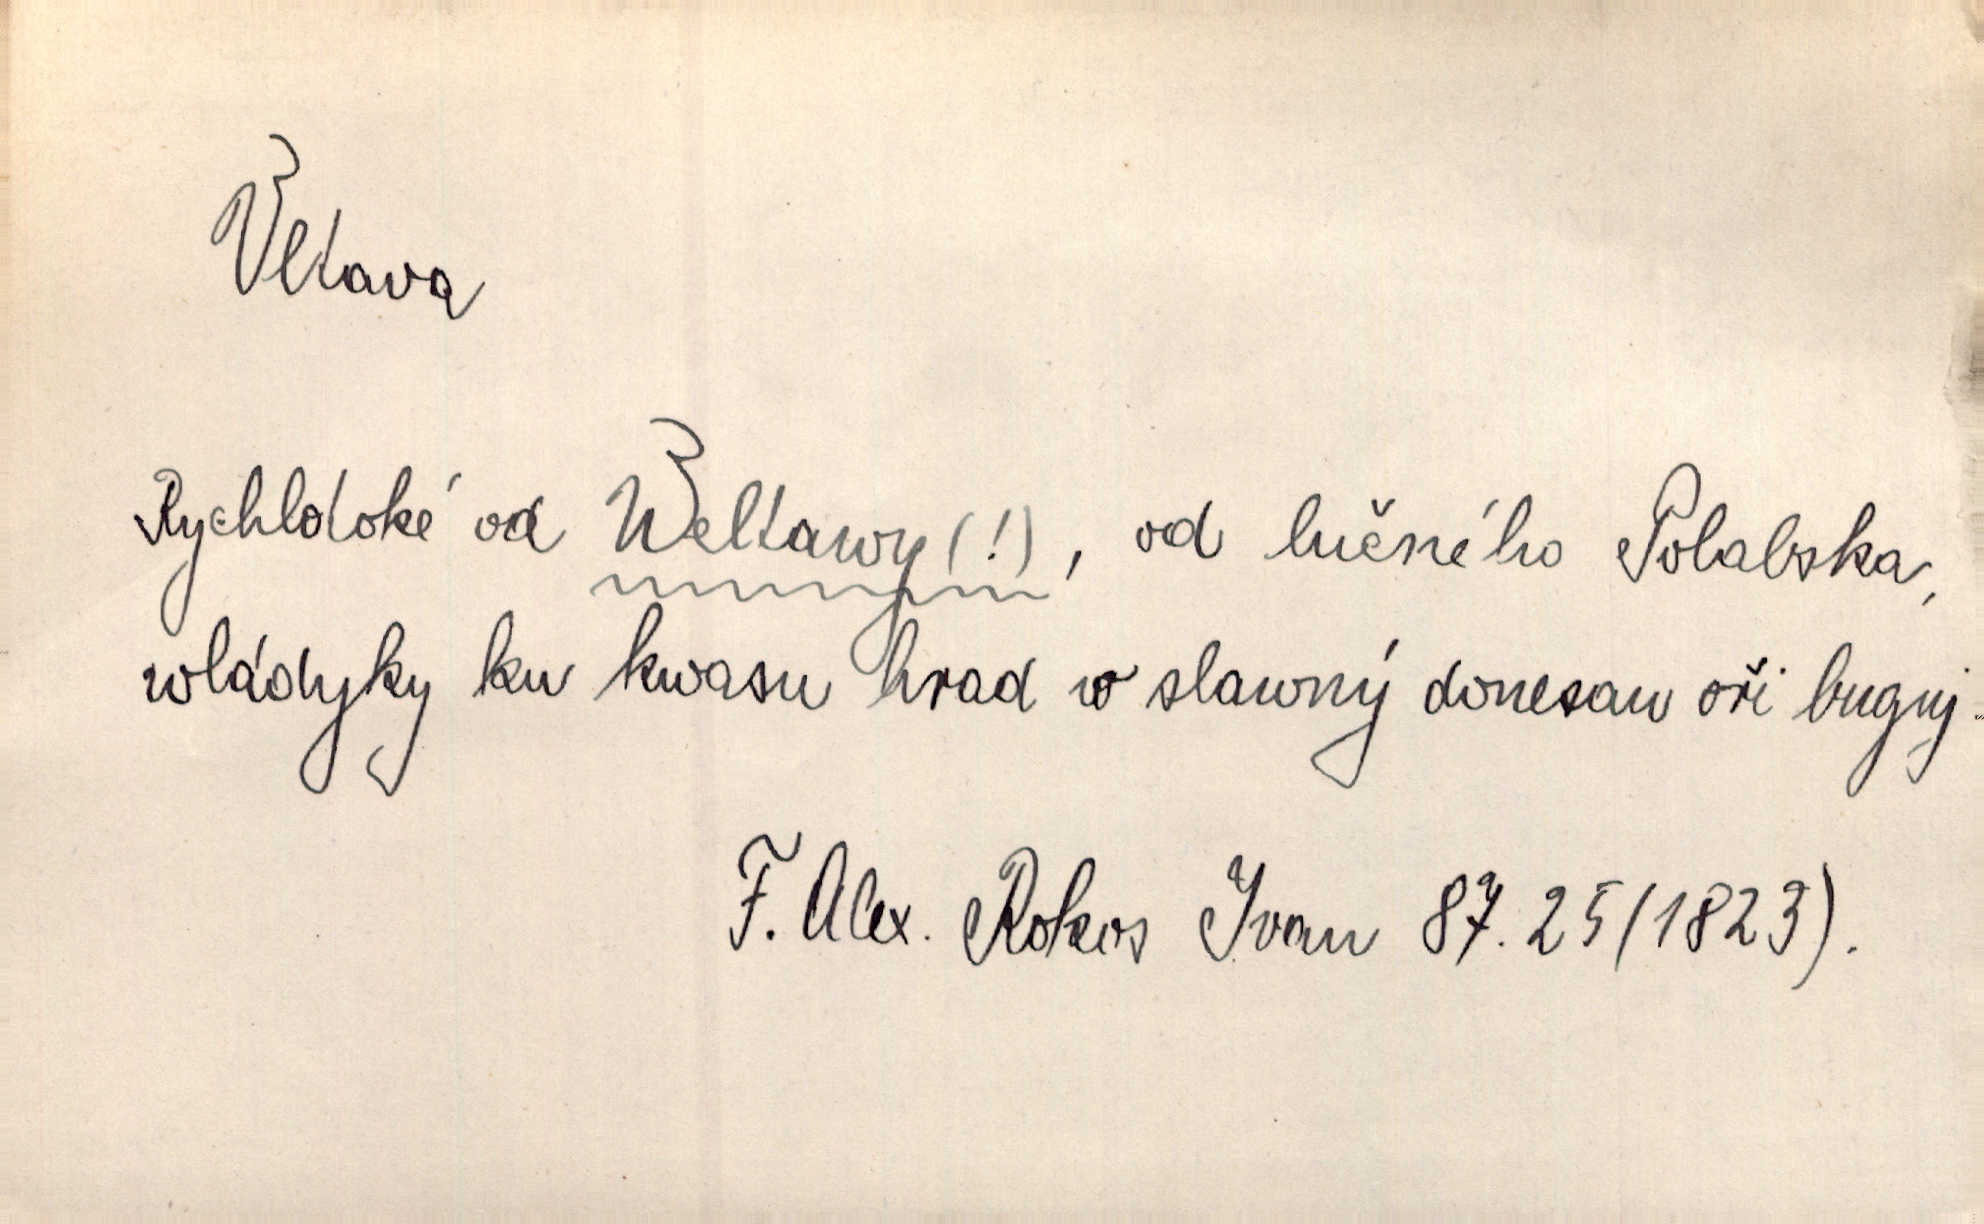 Vltava
Rychlotoké od Weltawy (!), od lučného Polabska,
wládyky ku kwasu hrad w slawný donesau oři bugnj.
F. Alex. Rokos Ivan 87. 25 (1823).